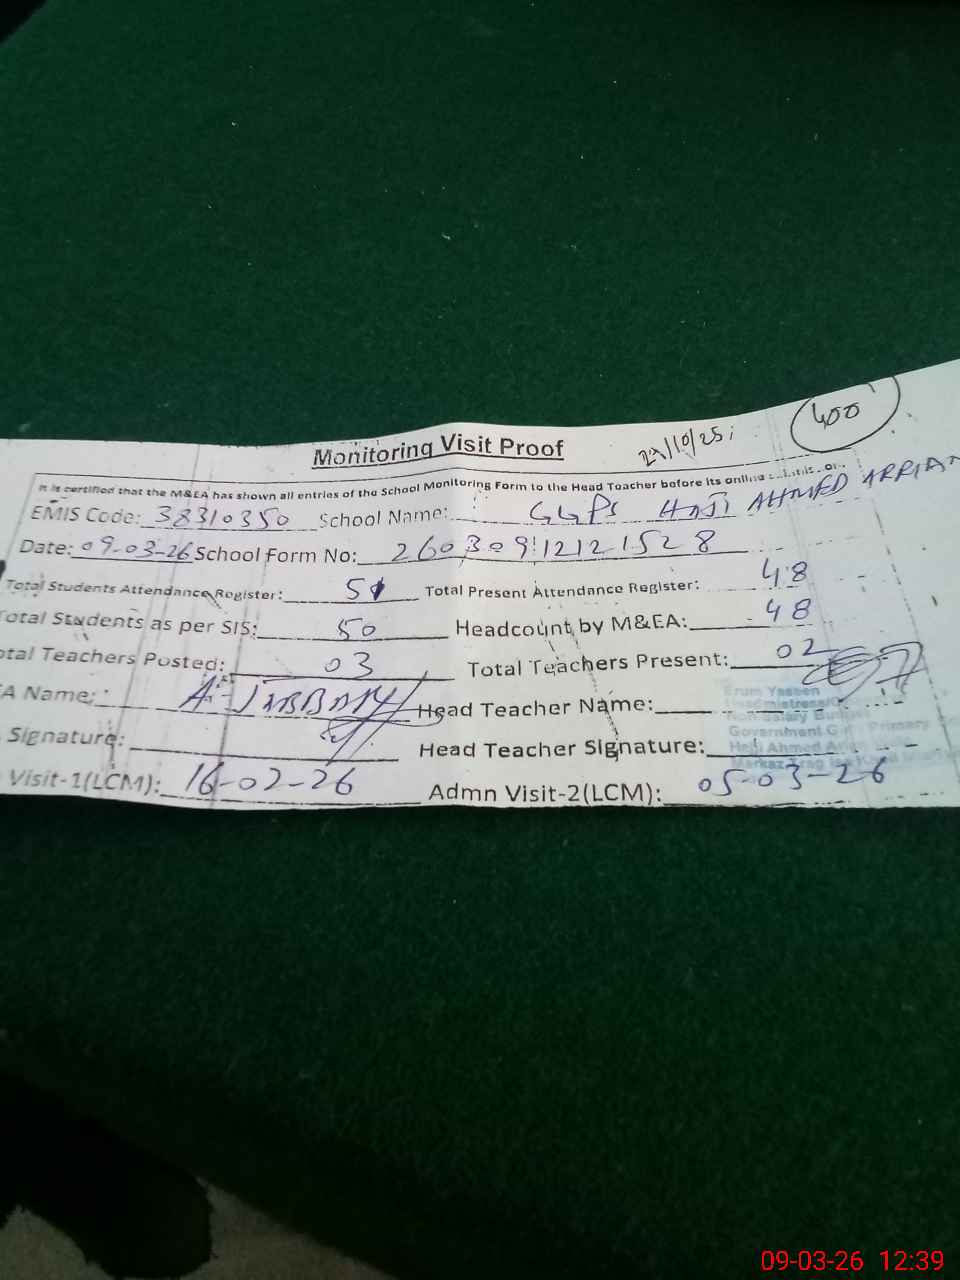 400
Monitoring Visit Proof
It is certified that the M&EA has shown all entries of the School Monitoring Form to the Head Teacher before its online
EMIS Code: 38310350 School Name: GGPS HAJI AHMED ARRIAN
Date: 09-03-26 School Form No: 26030912121528
Total Students Attendance Register: Total Present Attendance Register: 48
Total Students as per SIS: 50 Headcount by M&EA: 48
otal Teachers Posted: 03 Total Teachers Present: 02
A Name: Head Teacher Name:
Erum Yaseen
Government
Primary
Haji Ahmed
Markaz
Signature: Head Teacher Signature:
Visit-1(LCM): 16-02-26 Admn Visit-2(LCM): 05-03-26
09-03-26 12:39